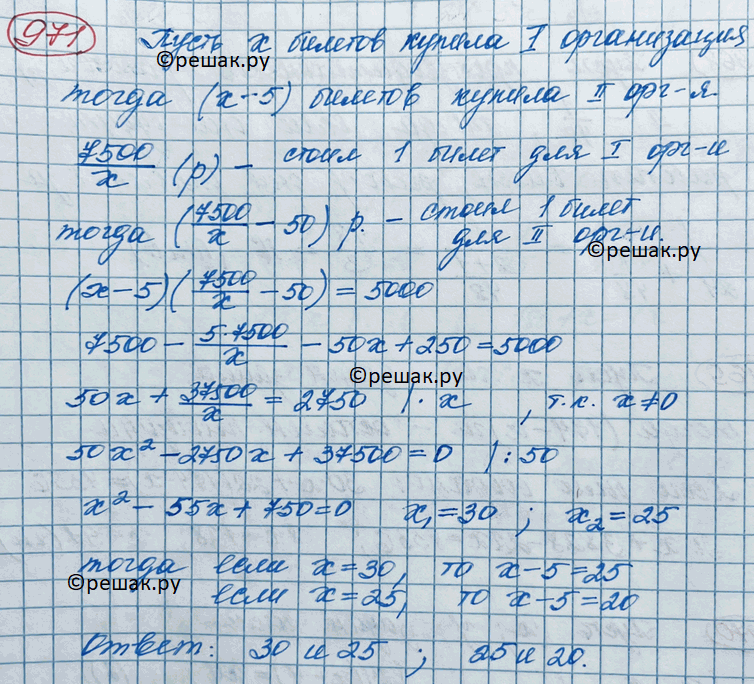 971 Пусть x билетов купила I организация
©решак.ру
тогда (x-5) билетов купила II орг-я.
7500/x (р) - стоил 1 билет для I орг-и
тогда (7500/x - 50) р. - стоил 1 билет
для II орг-и.
©решак.ру
(x-5)(7500/x - 50) = 5000
7500 - 5·7500/x - 50x + 250 = 5000
©решак.ру
50x + 37500/x = 2750 |· x , т.к. x≠0
50x² - 2750x + 37500 = 0 |: 50
x² - 55x + 750 = 0 x₁ = 30 ; x₂ = 25
тогда если x = 30, то x-5 = 25
©решак.ру
если x = 25, то x-5 = 20
Ответ: 30 и 25 ; 25 и 20.